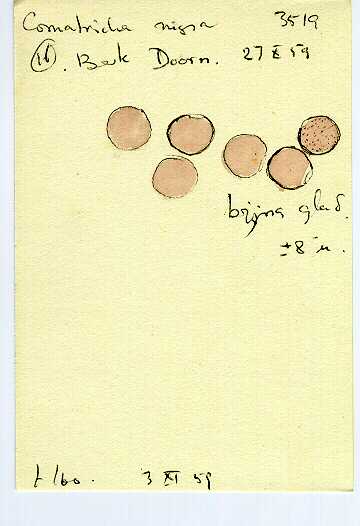 Comatricha nigra 3519
(16). Beek Doorn. 27 X 59
bijna glad.
±8 µ.
t 160. 3 XI 59